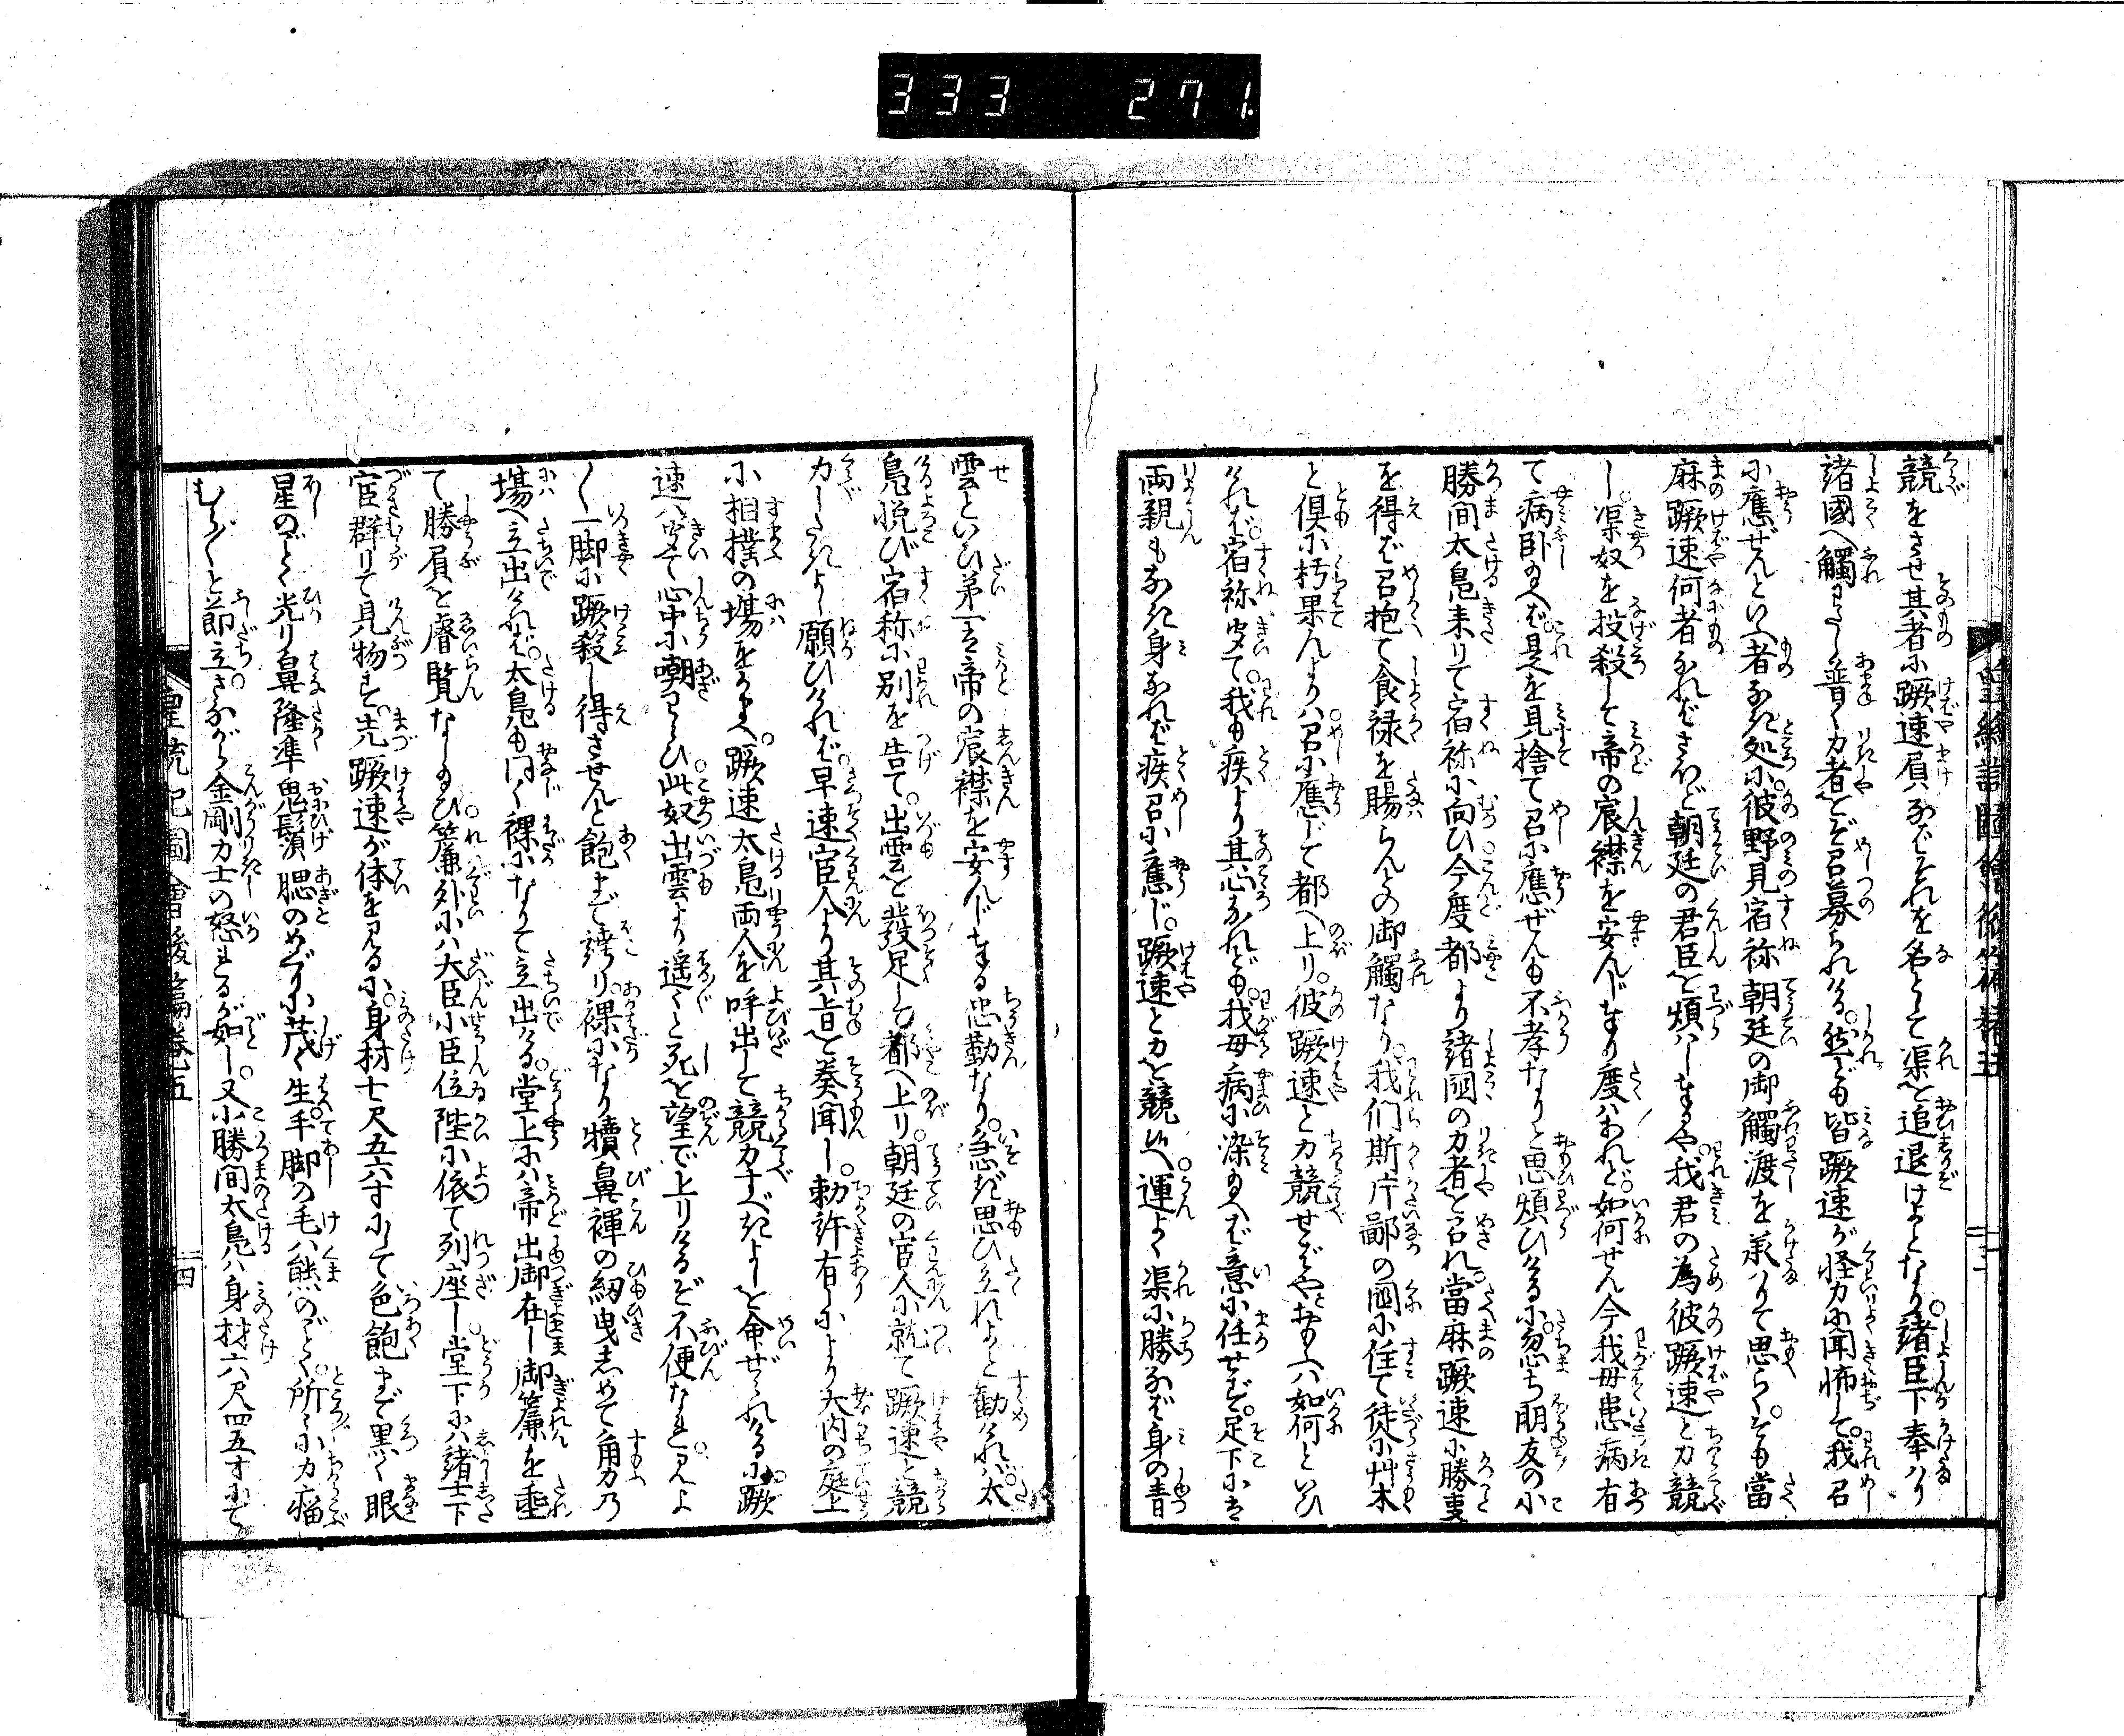 333 271.
競をさせ其者に蹶速負なばそれを名として渠を追退けよとなり。諸臣下奉はり
諸國へ觸わたし普く力者をぞ召募られける。然ども皆蹶速が怪力に聞怖して。我召
に應ぜんといふ者なき処に。彼野見宿祢朝廷の御觸渡を承りて思らく。そも當
麻蹶速何者なればさほど朝廷の君臣を煩はしまゐるや。我君の為彼蹶速と力競
し。渠奴を投殺して帝の宸襟を安んじまゐり度はあれど。如何せん今我母患病有
て病臥給へば。是を見捨て召に應ぜんも不孝なりと思煩ひける小。忽ち朋友の小
勝間太鳧来りて。宿祢に向ひ今度都より諸國の力者を召れ。當麻蹶速に勝事
を得ば召抱て食禄を賜らんとの御觸なり。我们斯片鄙の國に住て徒に艸木
と倶に朽果んよりは。召に應じて都へ上り。彼蹶速と力競せばやとおもふは如何といひ
ければ。宿祢聞て。我も疾より其心なれども。我母病に染給へば意に任せず。足下には
両親もなき身なれば疾召に應じ。蹶速と力を競給へ。運よく渠に勝なば身の青
雲といひ第一は帝の宸襟を安んじまゐる忠勤なり。急ぎ思ひ立れよと勧ければ。太
鳧悦び宿祢に別を告て。出雲を發足して都へ上り。朝廷の官人に就て蹶速と競
力したきよし願ひければ。早速官人より其旨を奏聞し。勅許有しにより大内の庭上
に相撲の場をかまへ。蹶速太鳧両人を呼出して競力すべきよしを命ぜられけるに。蹶
速は聞て心中に嘲わらひ。此奴出雲より遥々と死を望で上りけるぞ不便なれ。見よ
〳〵一脚に蹶殺し得させんと飽まで誇り。裸になり犢鼻褌の紐曳しめて角力の
場へ立出ければ。太鳧も同く裸になりて立出ける。堂上には帝出御在し御簾を垂
て勝負を睿覧なし給ひ。簾外には大臣小臣位陛に依て列座し。堂下には諸士下
官群りて見物す。先蹶速が体を見るに。身材七尺五六寸にして色飽まで黒く眼
星のごとく光り鼻隆準鬼鬚腮のめぐりに茂く生。手脚の毛は熊のごとく。所々に力瘤
むら〳〵と節立さながら金剛力士の怒れるが如し。又小勝間太鳧は身材六尺四五寸にて
皇統記圖會後篇巻五
四